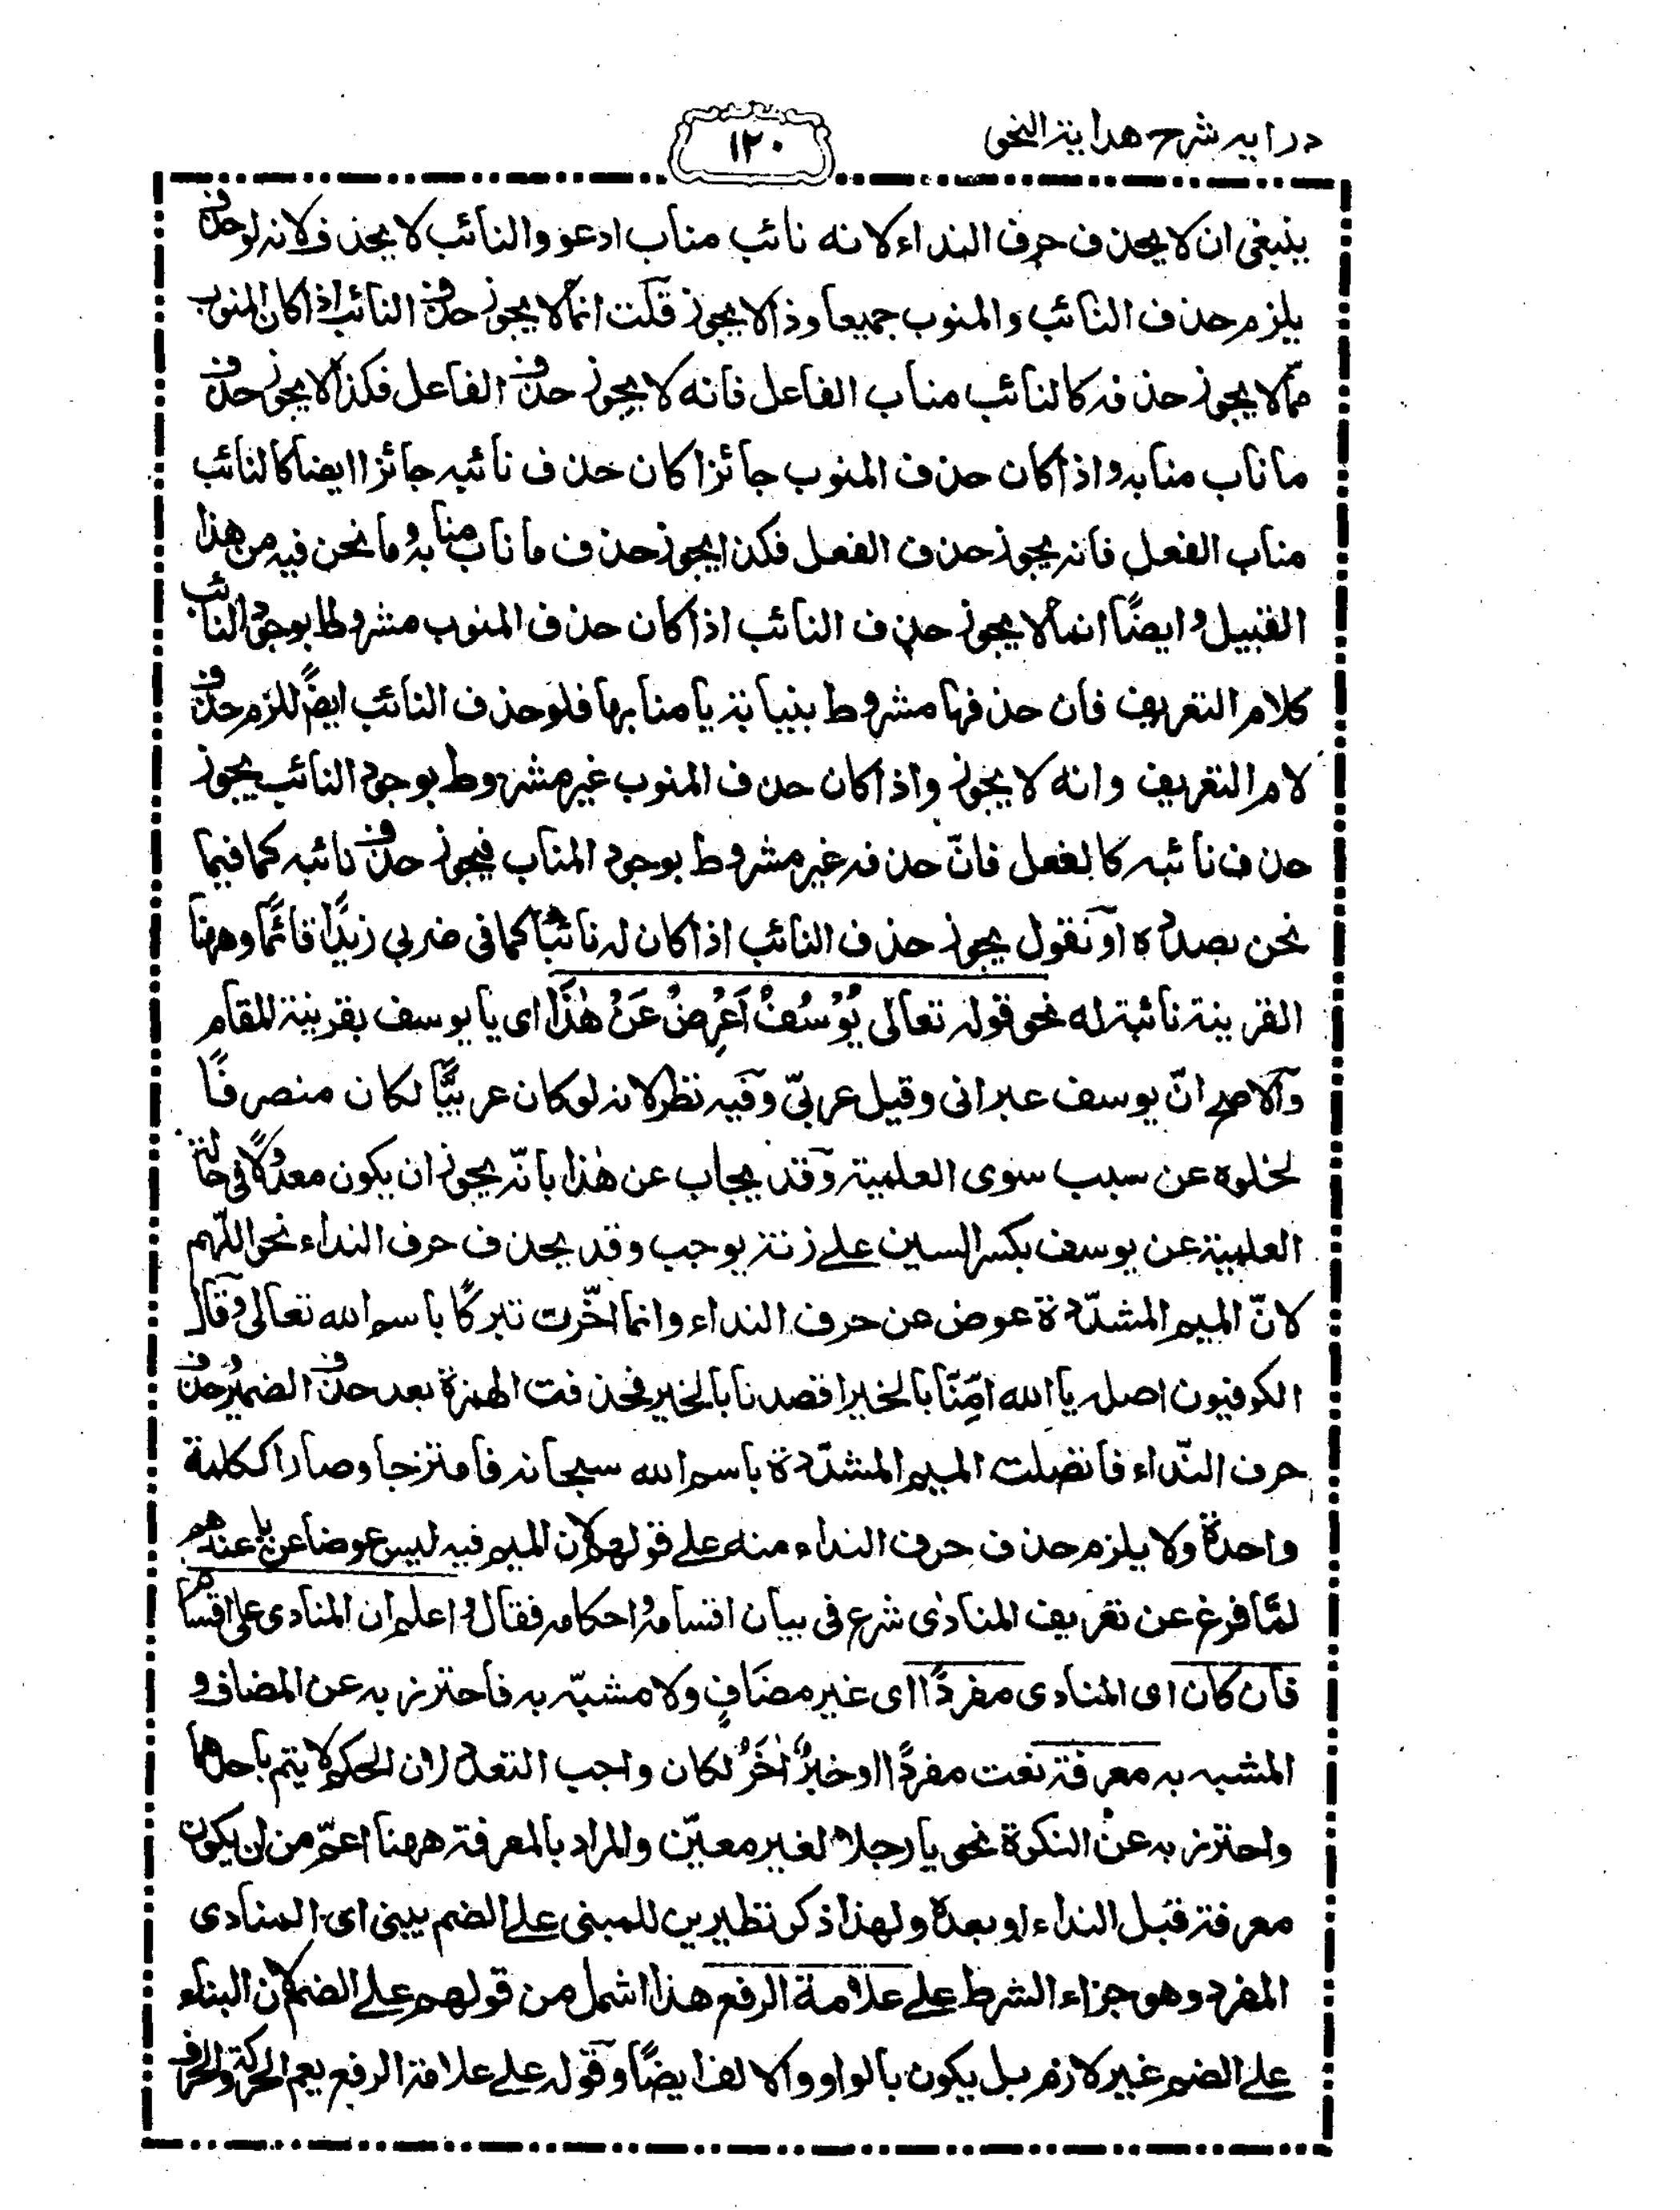 درايه شرح هداية النحو
١٢٠
ينبغى ان لا يحذف حرف النداء لانه نائب مناب ادعو والنائب لا يحذف لانه لو حذف
يلزم حذف النائب والمنوب جميعا وذا لا يجوز قلت انما لا يجوز حذف النائب اذا كان المنوب
مما لا يجوز حذفه كالنائب مناب الفاعل فانه لا يجوز حذف الفاعل فكذا لا يجوز حذف
ما ناب منابه واذا كان حذف المنوب جائزا كان حذف نائبه جائزا ايضا كالنائب
مناب الفعل فانه يجوز حذف الفعل فكذا يجوز حذف ما ناب منابه وما نحن فيه من هذا
القبيل وايضًا انما لا يجوز حذف النائب اذا كان حذف المنوب مشروطا بوجود النائب
كلام التعريف فان حذفها مشروط بنيابة يا منابها فلو حذف النائب ايضًا للزم حذف
لام التعريف وانه لا يجوز واذا كان حذف المنوب غير مشروط بوجود النائب يجوز
حذف نائبه كالفعل فانّ حذفه غير مشروط بوجود المناب فيجوز حذف نائبه كما فيما
نحن بصدده او نقول يجوز حذف النائب اذا كان له نائبًا كما فى ضربى زيدًا قائمًا وههنا
القرينة نائبة له نحو قوله تعالى يُوْسُفُ اَعْرِضْ عَنْ هٰذَا اى يا يوسف بقرينة المقام
والاصح انّ يوسف عبرانى وقيل عربىّ وفيه نظر لانه لو كان عربيًّا لكان منصرفًا
لخلوه عن سبب سوى العلمية وقد يجاب عن هٰذا بانّه يجوز ان يكون معدولًا فى حالة
العلمية عن يوسف بكسر السين على زنة يوجب وقد يحذف حرف النداء نحو اللّهم
لانّ الميم المشدّدة عوض عن حرف النداء وانما اخّرت تبركًا باسم الله تعالى وقال
الكوفيون اصله يا الله امّنا بالخير اقصدنا بالخير فحذفت الهمزة بعد حذف الضمير وحذف
حرف النّداء فاتصلت الميم المشدّدة باسم الله سبحانه فامتزجا وصارا ككلمة
واحدة ولا يلزم حذف حرف النداء منه على قولهم لان الميم فيه ليس عوضا عن يا عندهم
لمّا فرغ عن تعريف المنادٰى شرع فى بيان اقسامه واحكامه فقال واعلم ان المنادى على اقسام
فان كان اى المنادى مفردًا اى غير مضافٍ ولا مشبّه به فاحترز به عن المضاف و
المشبه به معرفة نعت مفردًا او خبرٌ اٰخَرُ لكان واجب التعدد لان الحكم لا يتم باحدهما
واحترز به عن النكرة نحو يا رجلا لغير معيّن والمراد بالمعرفة ههنا اعمّ من ان يكون
معرفة قبل النداء او بعده ولهذا ذكر نظيرين للمبنى على الضم يبنى اى المنادى
المفرد وهو جزاء الشرط على علامة الرفع هذا اشمل من قولهم على الضم لان البناء
على الضم غير لازم بل يكون بالواو والالف ايضًا وقوله على علامة الرفع يعم الحركة والحرف